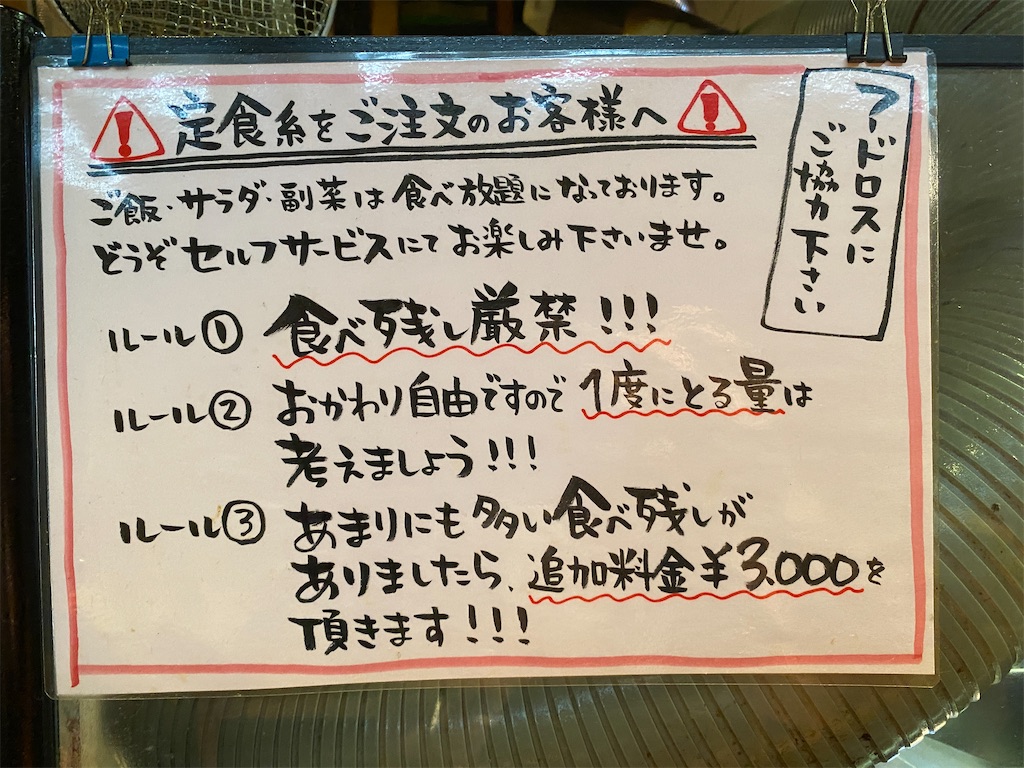 定食系をご注文のお客様へ
フードロスに
ご協力下さい
ご飯・サラダ・副菜は食べ放題になっております。
どうぞセルフサービスにてお楽しみ下さいませ。
ルール① 食べ残し厳禁!!!
ルール② おかわり自由ですので1度にとる量は
考えましょう!!!
ルール③ あまりにも多い食べ残しが
ありましたら、追加料金¥3.000を
頂きます!!!